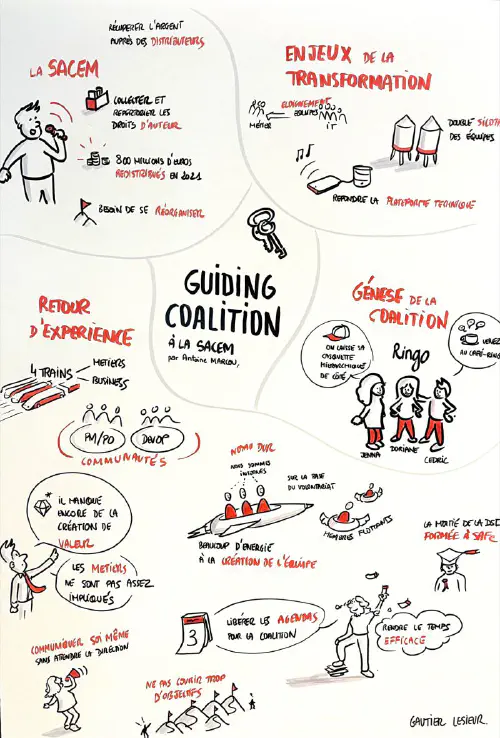 LA SACEM
RÉCUPERER L'ARGENT
AUPRÈS DES DISTRIBUTEURS
COLLECTER ET
REPERTORIER LES
DROITS D'AUTEUR
800 MILLIONS D'EUROS
REDISTRIBUÉS EN 2021
BESOIN DE SE RÉORGANISER
ENJEUX DE LA
TRANSFORMATION
ELOIGNEMENT
EQUIPES
MÉTIER
IT
DOUBLE
DES ÉQUIPES
REPONDRE LA PLATEFORME TECHNIQUE
GUIDING
COALITION
À LA SACEM
par Antoine MARCOU,
GÉNESE DE LA
COALITION
ON LAISSE SA
CASQUETTE
HIERARCHIQUE
DE CÔTÉ
Ringo
VENEZ
AU CAFÉ-RINGO
JENNA
DORIANE
CEDRIC
RETOUR
D'EXPERIENCE
4 TRAINS
METIERS
BUSINESS
PM/PO
DEVOP
COMMUNAUTÉS
IL MANQUE
ENCORE DE LA
CRÉATION DE
VALEUR
LES METIERS
NE SONT PAS ASSEZ
IMPLIQUÉS
NOYAU DUR
NOUS SOMMES
INVESTIES
SUR LA BASE
DU VOLONTARIAT
MEMBRES FLOTTANTS
BEAUCOUP D'ENERGIE
À LA CRÉATION DE L'ÉQUIPE
LA MOITIÉ DE LA DSI
FORMÉE À SAFe
3
LIBÉRER LES AGENDAS
POUR LA COALITION
RENDRE LE TEMPS
EFFICACE
COMMUNIQUER SOI MÊME
SANS ATTENDRE LA DIRECTION
NE PAS COURIR TROP
D'OBJECTIFS
GAUTIER LESIEUR.